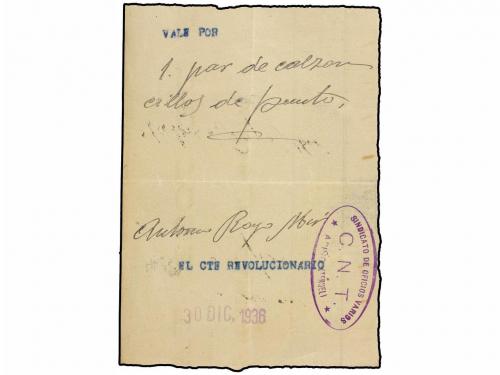 VALE POR
1. par de calzon
cillos de punto,
Antonio Royo
EL CTE REVOLUCIONARIO
30 DIC. 1936
SINDICATO DE OFICIOS VARIOS
C.N.T.